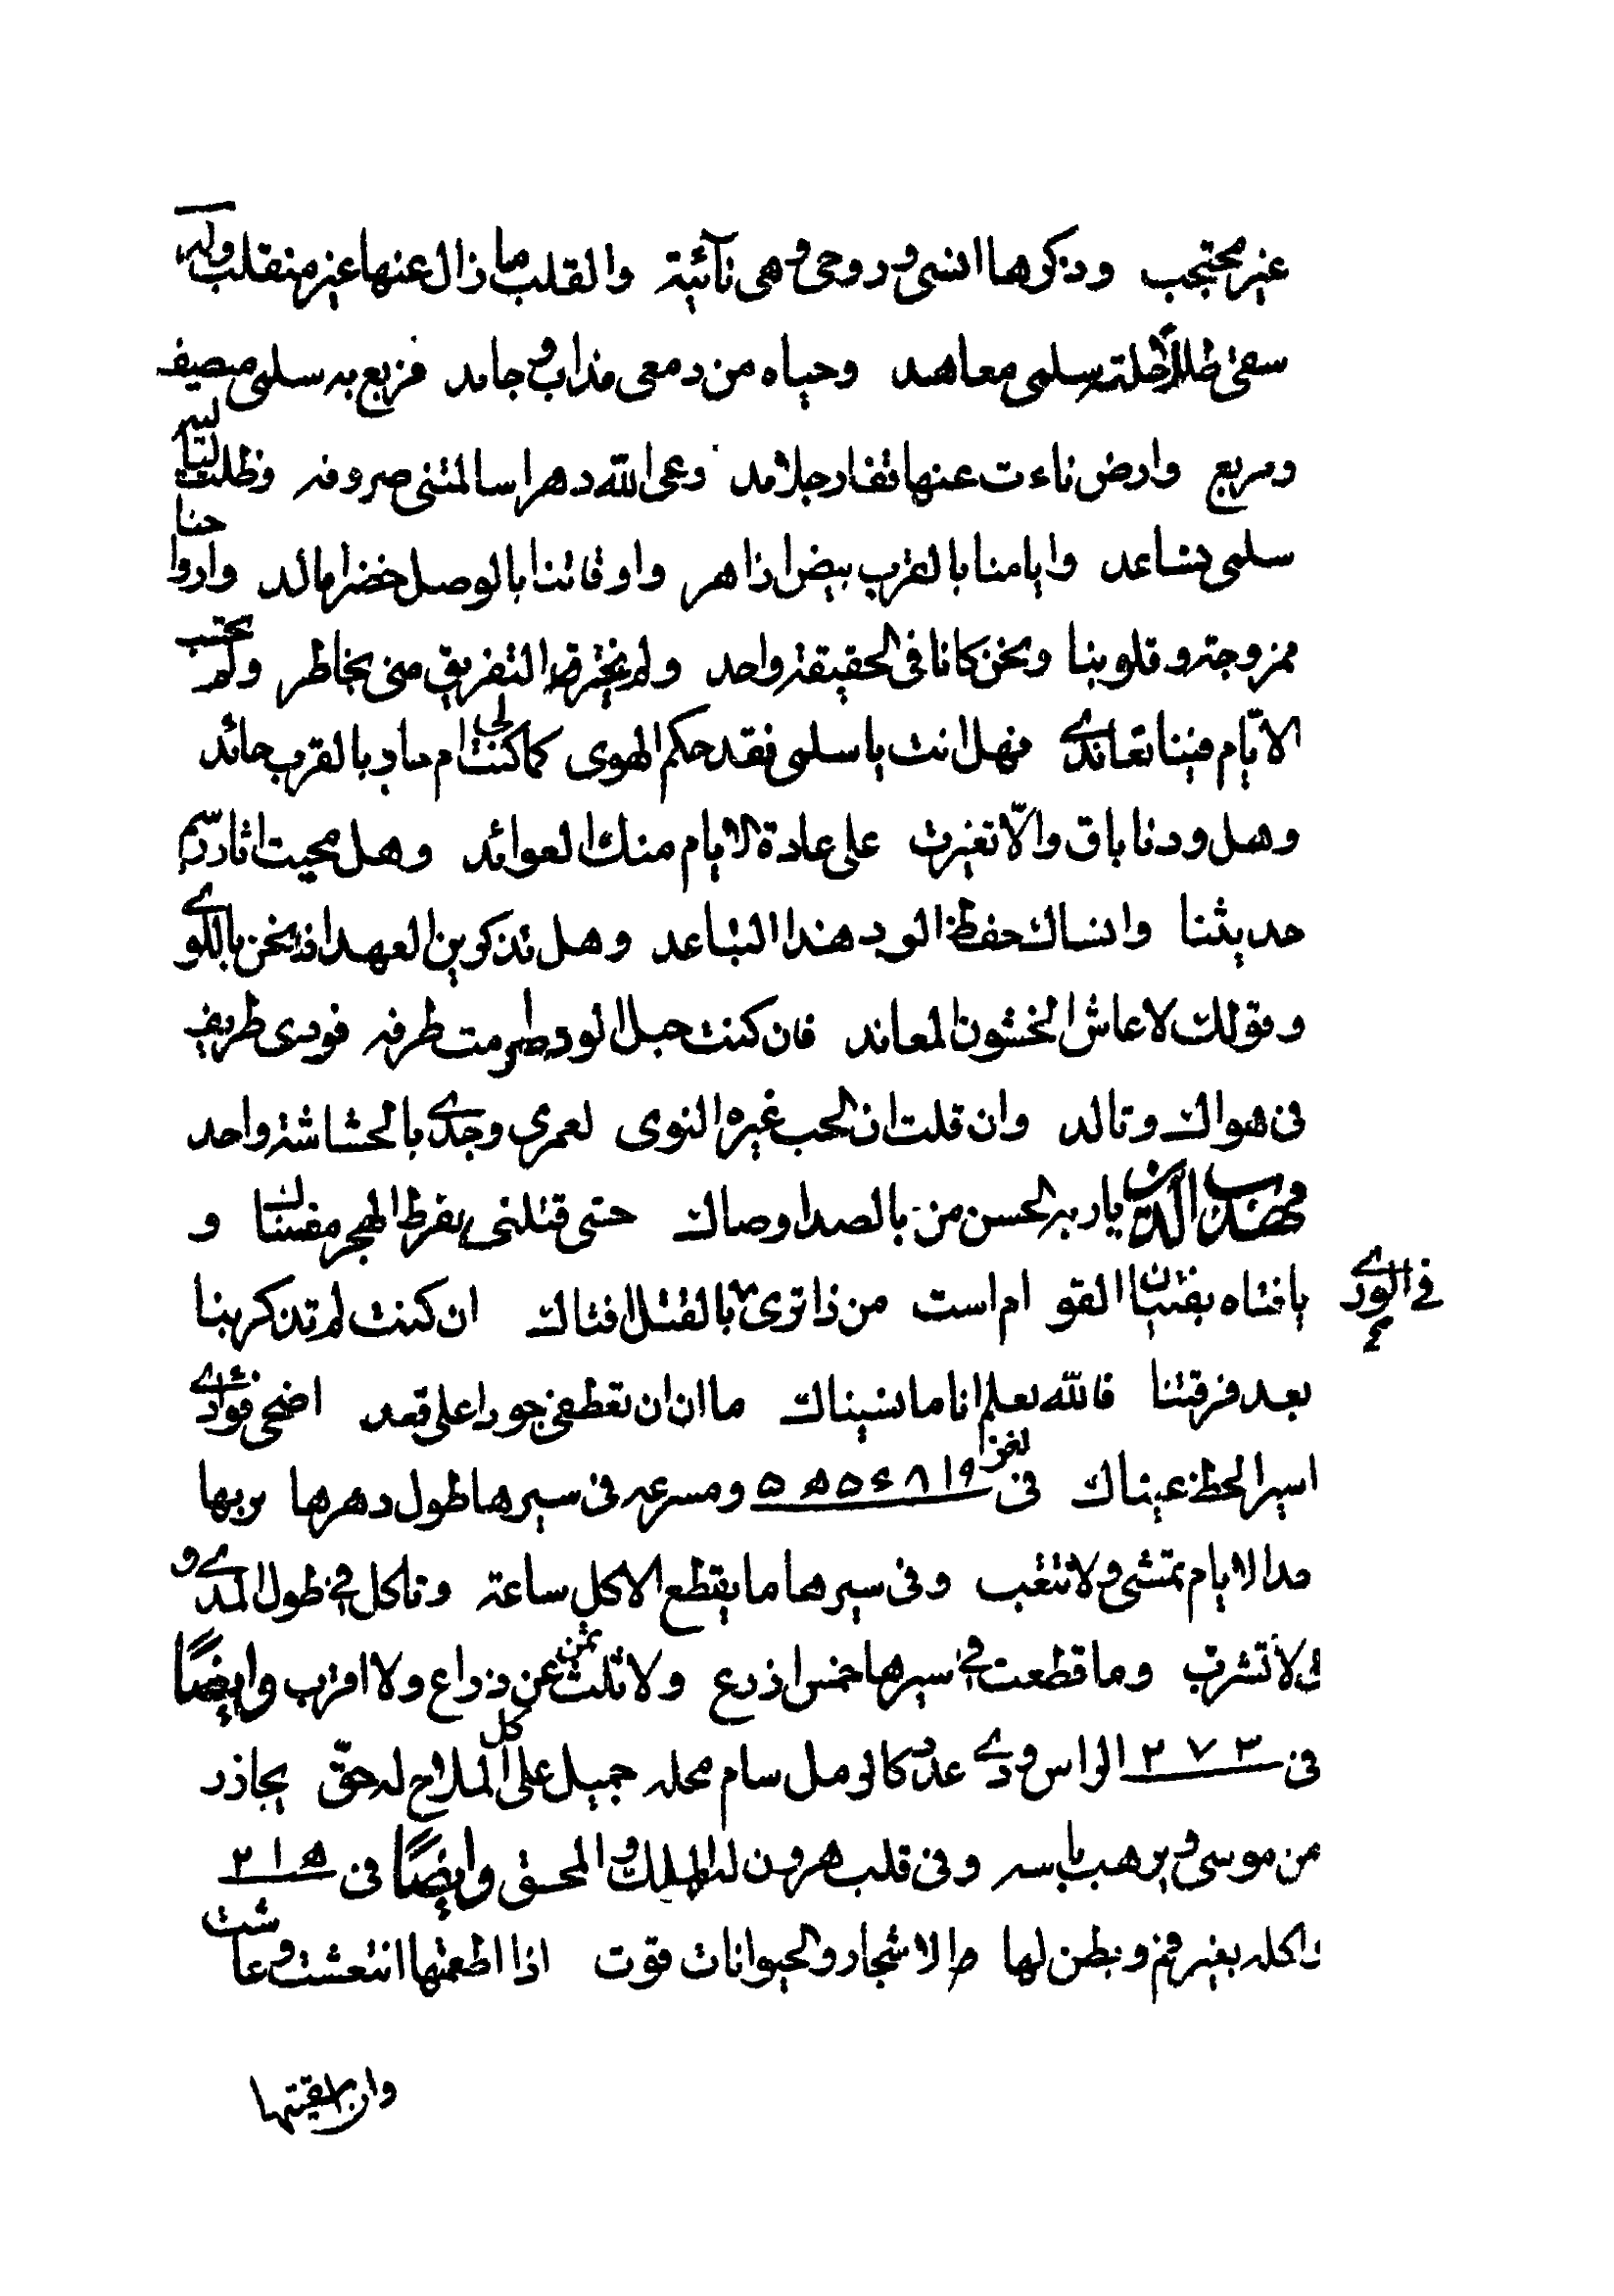 غير محتجب وذكرها انسى وروحى وهى نآئية والقلب ما زال عنها غير منقلب وله
سقى طللا حلته سلمى معاهد وحياه من دمعى مذاب وجامد فربع به سلمى مصيف
ومربع وارض ناءت عنها قفار جلامد رعى الله دهرا سالمتنى صروفه وظلت ليا ليه
سلمى تساعد وايامنا بالقرب بيض ازاهر واوقاتنا بالوصل خضر امالد وارواحنا
ممزوجة وقلوبنا ونحن كانا فى الحقيقة واحد ولم يخترق التفريق منى بخاطر ولم تحتسب
الايّام فينا تعاندى فهل انت يا سلمى فقد حكم الهوى كما كنت لى ام حاد بالقرب حائد
وهل ودنا باق والّا تغيرت على عادة الايام منك العوائد وهل محيت اثار رسم
حديثنا وانساك حفظ الود هذا التباعد وهل تذكرين العهد اذ نحن باللوى
وقولك لا عاش الخشون المعاند فان كنت حبل الود صرمت طرفه فودى طريف
فى هواك وتالد وان قلت ان الحب غيره النوى لعمرى وجدى بالحشاشة واحد
مهذب الدين يا ربة الحسن من بالصد اوصاك حتى قتلتنى بفرط الهجر مضناك و
يا فتاه بفتيان القوام است من ذا ترى بالقتل افتاك ان كنت لم تذكرينا
فى الورى
بعد فرقتنا فالله يعلم انا ما نسيناك ما ان ان تعطفى جورا على قعد اضحى فؤادى
اسير الحظ عيناك لغزا فى ١٩ ٨ ٤ ٥ ه ٥ ومسرعه فى سيرها طول دهرها بربها
مدا الايام تمشى ولا تتعب وفى سيرها ما يقطع الاكل ساعة وتاكل فى طول المدى و
لى لا تشرب وما قطعت فى سيرها خمس اذرع ولا ثلث ثمن عن ذراع ولا اقرب وايضًا
فى ٣ ٧ ٢ الواس ودى عدد كالرمل سام محله جميل على كل الملاح له حقّ يجاذر
من موسى ويرهب باسه وفى قلب هرون له الهلك والمحق وايضًا فى ه ١ ٢
واكله بغير فم وبطن لها الاشجار والحيوانات قوت اذا اطعمتها انتعشت وعاشت
وان اسقيتها